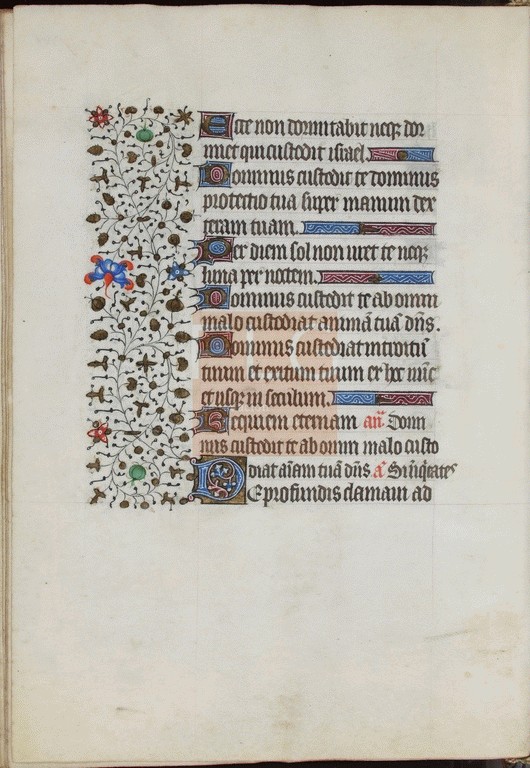 Ecce non dormitabit neq; dor
miet qui custodit israel.
Dominus custodit te dominus
protectio tua super manum dex
teram tuam.
Per diem sol non uret te neq;
luna per noctem.
Dominus custodit te ab omni
malo custodiat animā tuā dn̄s.
Dominus custodiat introitū
tuum et exitum tuum ex hoc nūc
et usq; in seculum.
Requiem eternam an̄ Domi
nus custodit te ab omni malo custo
diat aīam tuā dn̄s a᷒ Si iniquitates
De profundis clamaui ad